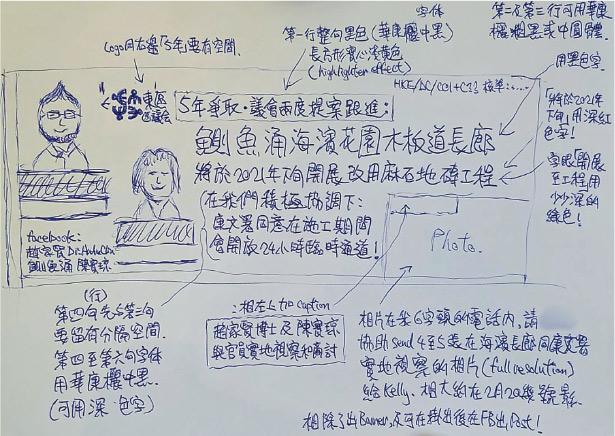 Logo同右邊「5年」要有空間.
第一行整句黑色(華康儷中黑)
字体
長方形實心淺黃色
(highlighter effect)
第二及第三行可用華康
儷粗黑或中圓體.
用黑色字.
「將於2021年
下旬」用深紅
色字!
字眼「開展
至工程」用
少少深的
綠色!
東區
區議會
HKE/DC/CC1+C23 檔案:.....
5年爭取·議會兩度提案跟進:
鰂魚涌海濱花園木板道長廊
將於2021年下旬開展改用麻石地磚工程
在我們積極協調下:
康文署同意在施工期間
會開放24小時臨時通道!
Photo.
facebook:
趙家賢
鰂魚涌 陳寶琼
(行)
第四句先與第三句
要留有分隔空間.
第四至第六句字体
用華康儷中黑.
(可用深 色字)
:相左上加caption
趙家賢博士及陳寶琼
與官員實地視察和商討
相片在我6字頭的電話內,請
協助send 4至5張在海濱長廊同康文署
實地視察的相片(full resolution)
給Kelly. 相大約在2月20幾號影.
相除了出Banner,及可在掛出後在FB出Post!